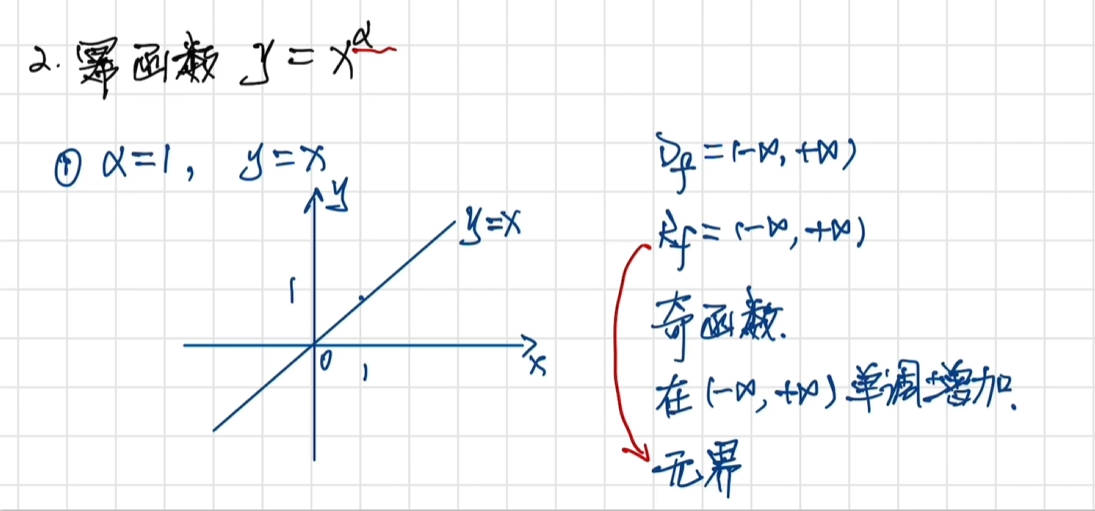 2. 幂函数 y = x^α
① α=1, y=x
y
y=x
1
0
1
x
D_f = (-∞, +∞)
R_f = (-∞, +∞)
奇函数.
在 (-∞, +∞) 单调增加.
无界